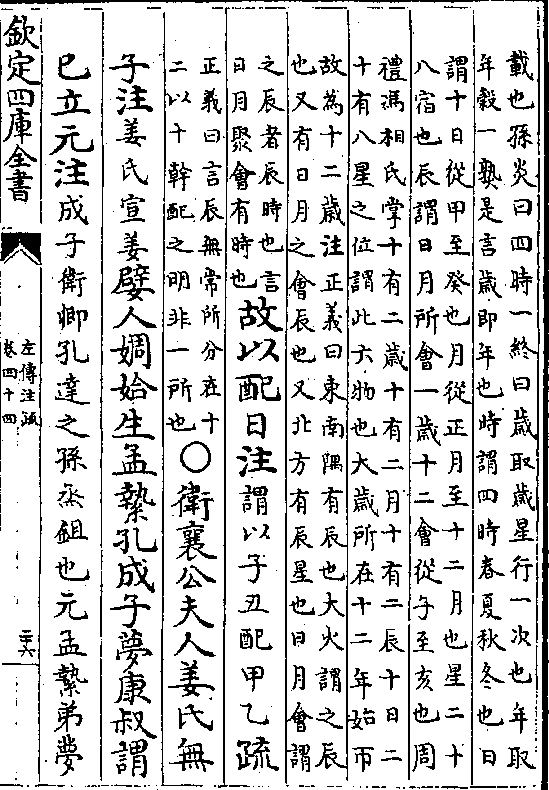 載也孫炎曰四時一終曰歲取歲星行一次也年取
年穀一熟是言歲即年也時謂四時春夏秋冬也日
謂十日從甲至癸也月從正月至十二月也星二十
八宿也辰謂日月所會一歲十二會從子至亥也周
禮馮相氏掌十有二歲十有二月十有二辰十日二
十有八星之位謂此六物也大歲所在十二年始帀
故為十二歲注正義曰東南隅有辰也大火謂之辰
也又有日月之會辰也又北方有辰星也日月會謂
之辰者辰時也言
日月聚會有時也
故以配日注謂以子丑配甲乙疏
正義曰言辰無常所分在十
二以十幹配之明非一所也
○衛襄公夫人姜氏無
子注姜氏宣姜嬖人婤姶生孟縶孔成子夢康叔謂
已立元注成子衛卿孔達之孫烝鉏也元孟縶弟夢
欽定四庫全書
左傳注疏
卷四十四